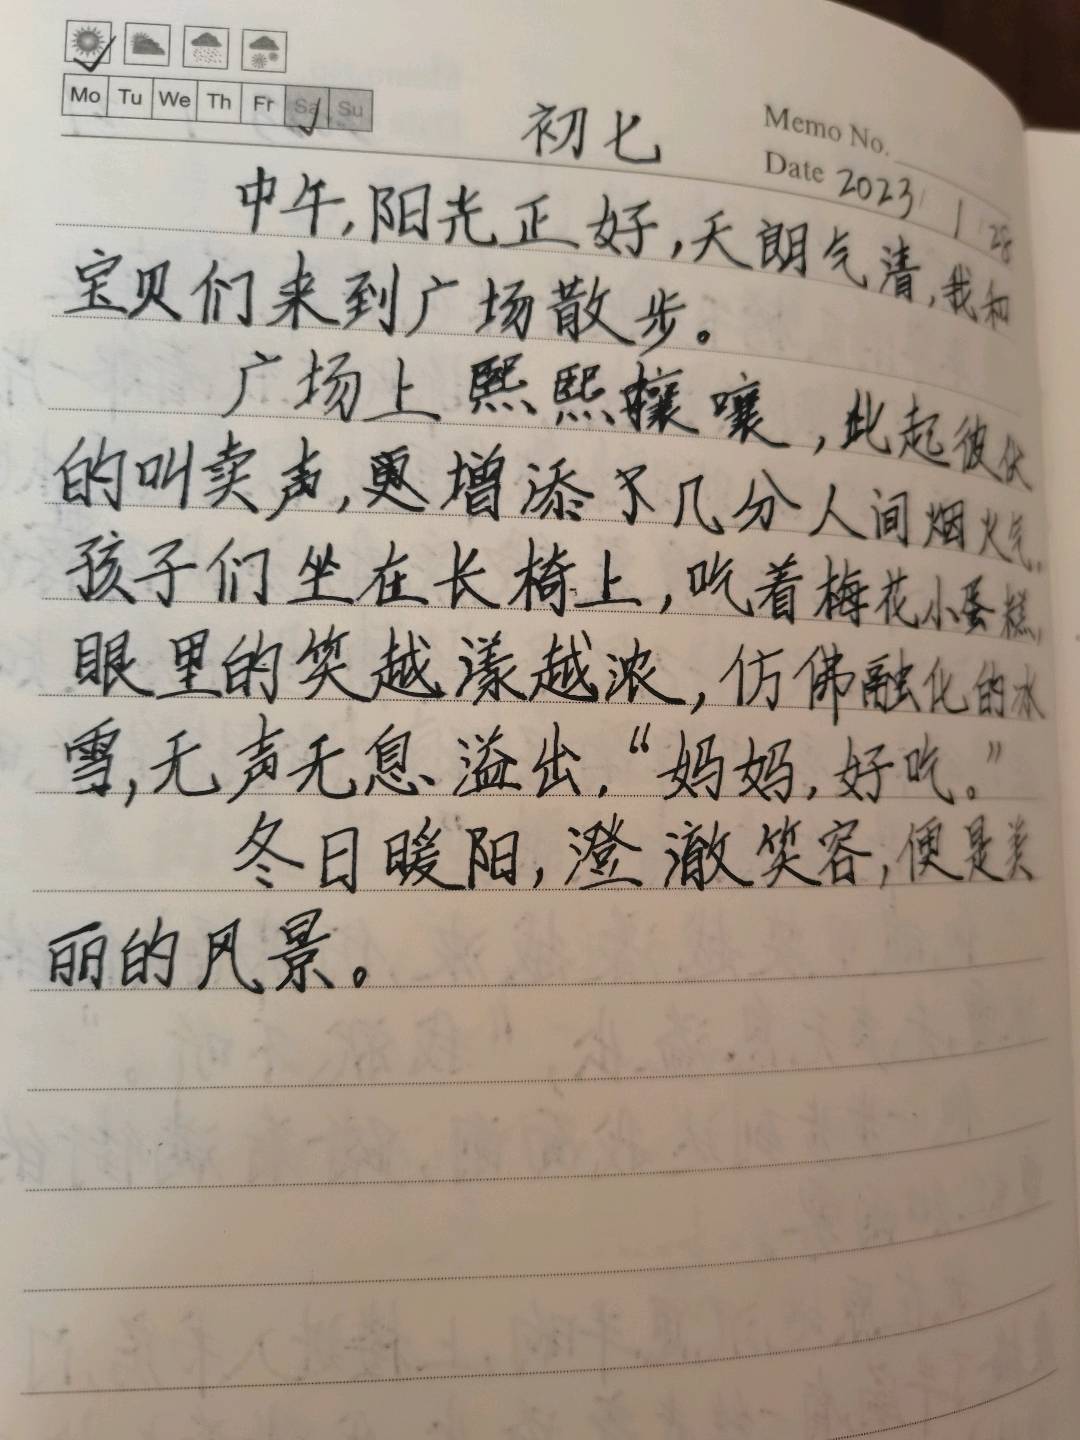 Mo Tu We Th Fr Sa Su
初七
Memo No.
Date 2023 1 28
中午,阳光正好,天朗气清,我和
宝贝们来到广场散步。
广场上熙熙攘嚷,此起彼伏
的叫卖声,更增添了几分人间烟火气。
孩子们坐在长椅上,吃着梅花小蛋糕,
眼里的笑越漾越浓,仿佛融化的冰
雪,无声无息溢出,“妈妈,好吃。”
冬日暖阳,澄澈笑容,便是美
丽的风景。